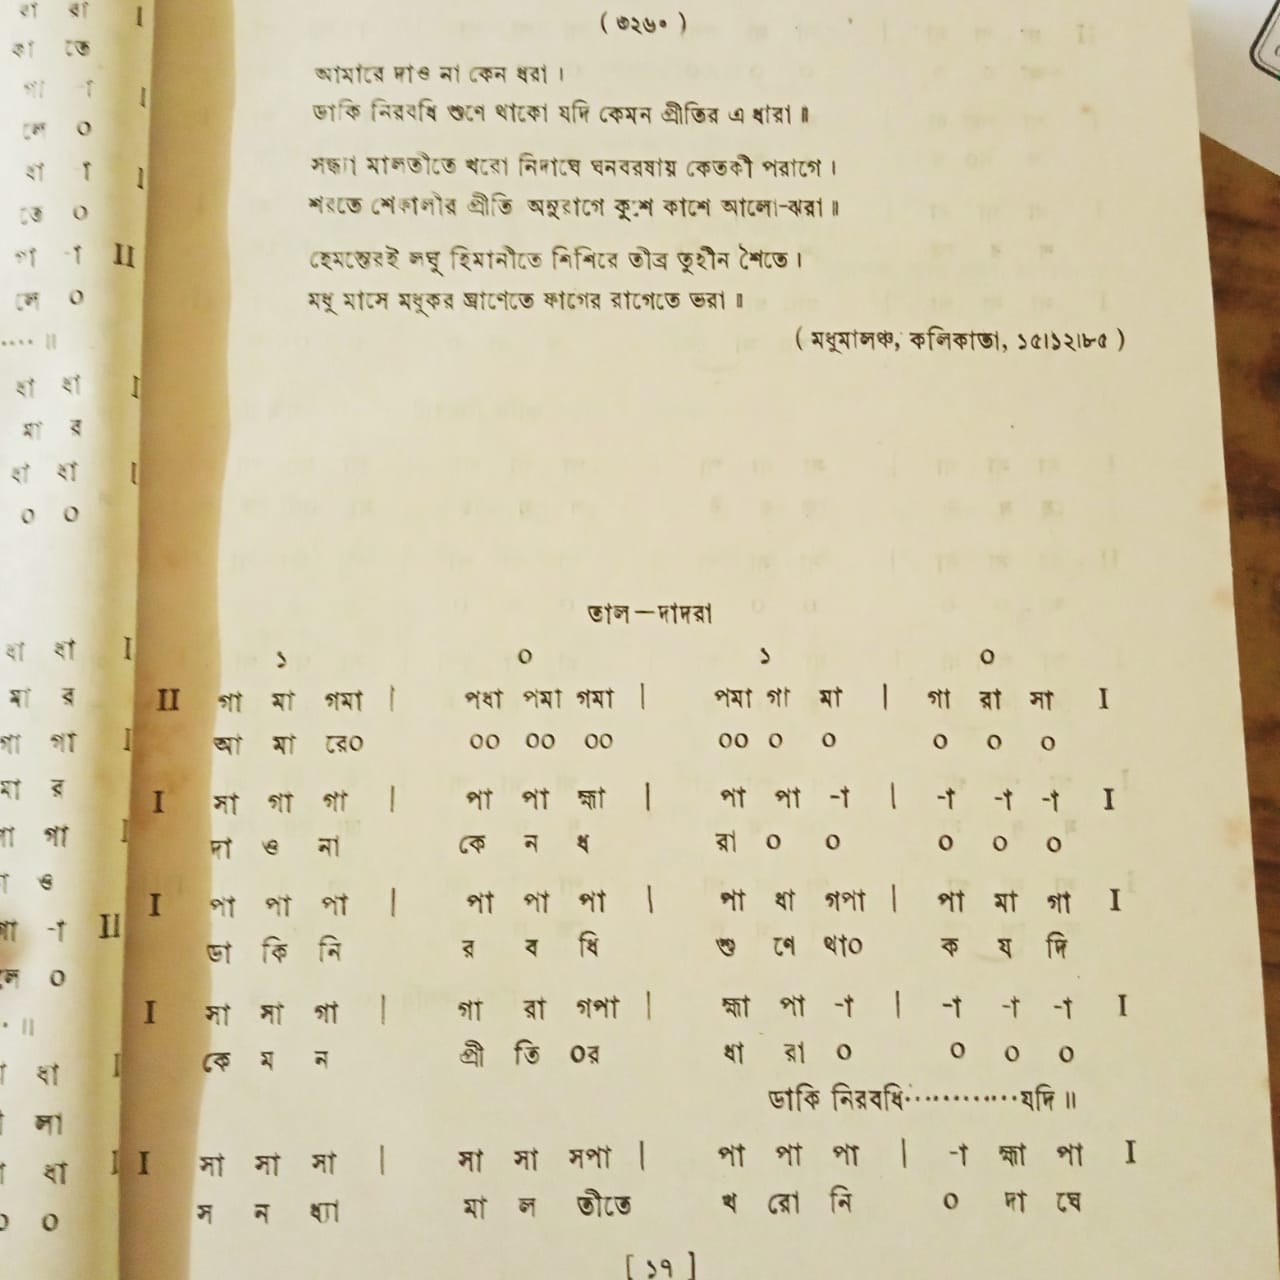 ( ৩২৬০ )
আমারে দাও না কেন ধরা ।
ডাকি নিরবধি শুণে থাকো যদি কেমন প্রীতির এ ধারা ॥
সন্ধ্যা মালতীতে খরো নিদাঘে ঘনবরষায় কেতকী পরাগে ।
শরতে শেফালীর প্রীতি অনুরাগে কুশে কাশে আলো-ঝরা ॥
হেমন্তেরই লঘু হিমানীতে শিশিরে তীব্র তুহীন শৈতে ।
মধু মাসে মধুকর ঘ্রাণেতে ফাগের রাগেতে ভরা ॥
( মধুমালঞ্চ, কলিকাতা, ১৫।১২।৮৫ )
তাল—দাদরা
১ ০ ১ ০
II গা মা গমা | পধা পমা গমা | পমা গা মা | গা রা সা I
আ মা রে০ ০০ ০০ ০০ ০০ ০ ০ ০ ০ ০
I সা গা গা | পা পা হ্মা | পা পা -া | -া -া -া I
দা ও না কে ন ধ রা ০ ০ ০ ০ ০
I পা পা পা | পা পা পা | পা ধা গপা | পা মা গা I
ডা কি নি র ব ধি শু ণে থা০ ক য দি
I সা সা গা | গা রা গপা | হ্মা পা -া | -া -া -া I
কে ম ন প্রী তি ০র ধা রা ০ ০ ০ ০
ডাকি নিরবধি············যদি ॥
I সা সা সা | সা সা সপা | পা পা পা | -া হ্মা পা I
স ন ধ্যা মা ল তীতে খ রো নি ০ দা ঘে
[ ১৭ ]